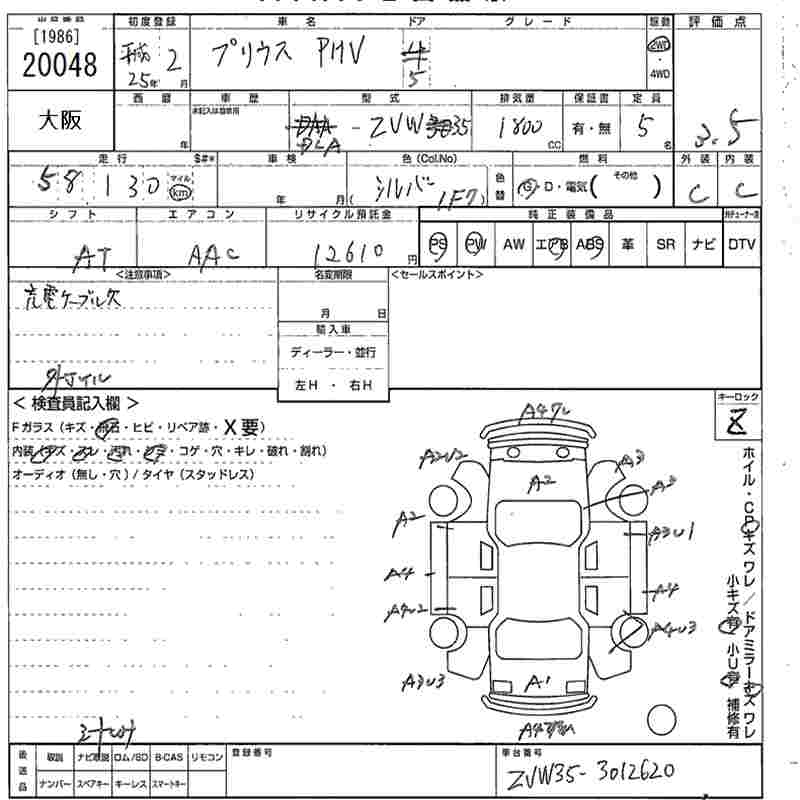 出品番号 初度登録 車名 ドア グレード 駆動 評価点
[1986]
20048 平成 25年 2月 プリウス PHV 4 5 2WD ・ 4WD
大阪 西暦 年 車歴 未記入は自家用 型式 排気量 保証書 定員
DAA DLA - ZVW 35 1800 CC 有・無 5名 3.5
走行 $#* 車検 色(Col.No) 燃料 外装 内装
58130 マイル km 年 月 シルバー (1F7) 色替 G・D・電気( その他 ) C C
シフト エアコン リサイクル預託金 純正装備品 外チューナー済
AT AAC 12610円 PS PW AW エアB ABS 革 SR ナビ DTV
<注意事項> 名変期限 <セールスポイント>
充電ケーブル欠
月 日
輸入車
ディーラー・並行
左H ・ 右H
< 検査員記入欄 > キーロック
Z
Fガラス(キズ・飛石・ヒビ・リペア跡・X要)
内装(キズ・スレ・汚れ・シミ・コゲ・穴・キレ・破れ・割れ)
オーディオ(無し・穴)/タイヤ(スタッドレス)
A2U2 A3
A2 A2
A2 A3U1
A4 A4
A4U2 A4U3
A3U3 A1
ホイル・CPキズ ワレ/ドアミラーキズ ワレ
小キズ有 小U有 補修有
後送品 取説 ナビ取説 ロム/SD B-CAS リモコン 登録番号 車台番号
ナンバー スペアキー キーレス スマートキー ZVW35-3012620